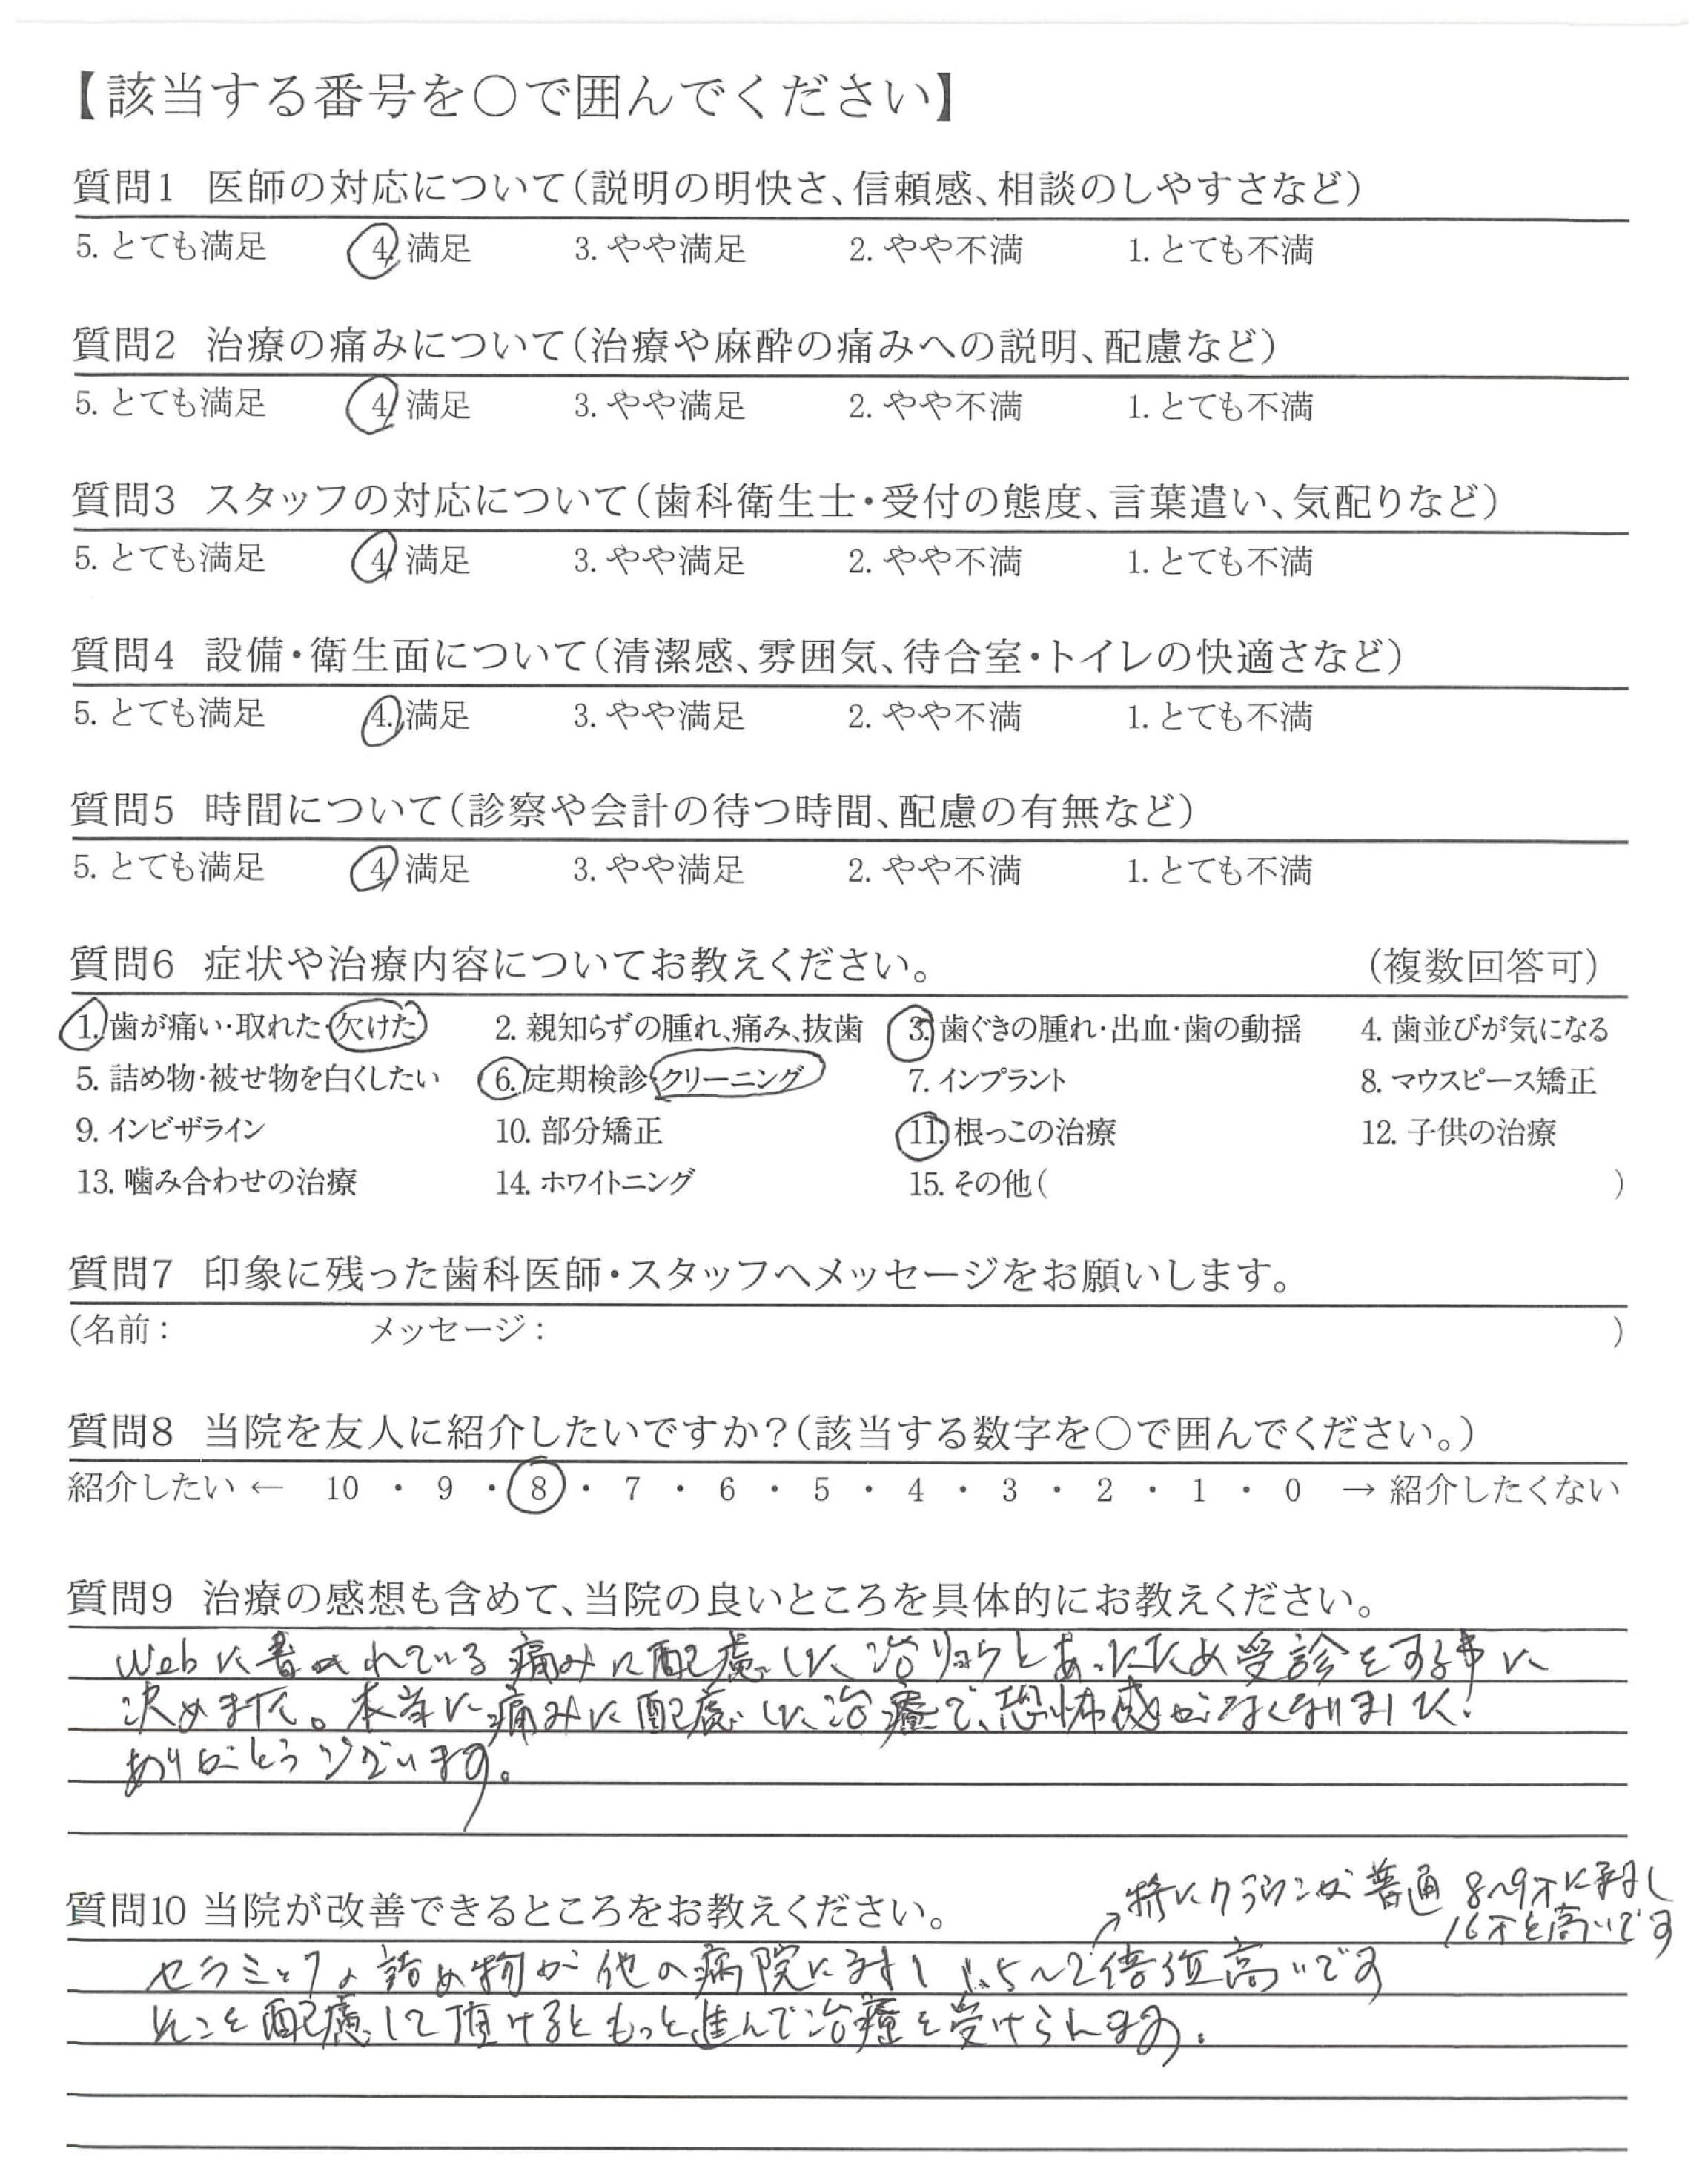 【該当する番号を○で囲んでください】
質問1 医師の対応について(説明の明快さ、信頼感、相談のしやすさなど)
5. とても満足 4. 満足 3. やや満足 2. やや不満 1. とても不満
質問2 治療の痛みについて(治療や麻酔の痛みへの説明、配慮など)
5. とても満足 4. 満足 3. やや満足 2. やや不満 1. とても不満
質問3 スタッフの対応について(歯科衛生士・受付の態度、言葉遣い、気配りなど)
5. とても満足 4. 満足 3. やや満足 2. やや不満 1. とても不満
質問4 設備・衛生面について(清潔感、雰囲気、待合室・トイレの快適さなど)
5. とても満足 4. 満足 3. やや満足 2. やや不満 1. とても不満
質問5 時間について(診察や会計の待つ時間、配慮の有無など)
5. とても満足 4. 満足 3. やや満足 2. やや不満 1. とても不満
質問6 症状や治療内容についてお教えください。 (複数回答可)
1. 歯が痛い・取れた・欠けた 2. 親知らずの腫れ、痛み、抜歯 3. 歯ぐきの腫れ・出血・歯の動揺 4. 歯並びが気になる
5. 詰め物・被せ物を白くしたい 6. 定期検診・クリーニング 7. インプラント 8. マウスピース矯正
9. インビザライン 10. 部分矯正 11. 根っこの治療 12. 子供の治療
13. 噛み合わせの治療 14. ホワイトニング 15. その他( )
質問7 印象に残った歯科医師・スタッフへメッセージをお願いします。
(名前: メッセージ: )
質問8 当院を友人に紹介したいですか?(該当する数字を○で囲んでください。)
紹介したい ← 10 ・ 9 ・ 8 ・ 7 ・ 6 ・ 5 ・ 4 ・ 3 ・ 2 ・ 1 ・ 0 → 紹介したくない
質問9 治療の感想も含めて、当院の良いところを具体的にお教えください。
Webに書かれている痛みに配慮した治りょうとあったため受診をする事に
決めました。本当に痛みに配慮した治療で、恐怖感がなくなりました!
ありがとうございます。
質問10 当院が改善できるところをお教えください。
↗特にクラウンが普通8~9万に対し
16万と高いです
セラミックの詰め物が他の病院に対し1.5~2倍位高いです
そこを配慮して頂けるともっと進んで治療を受けられます。